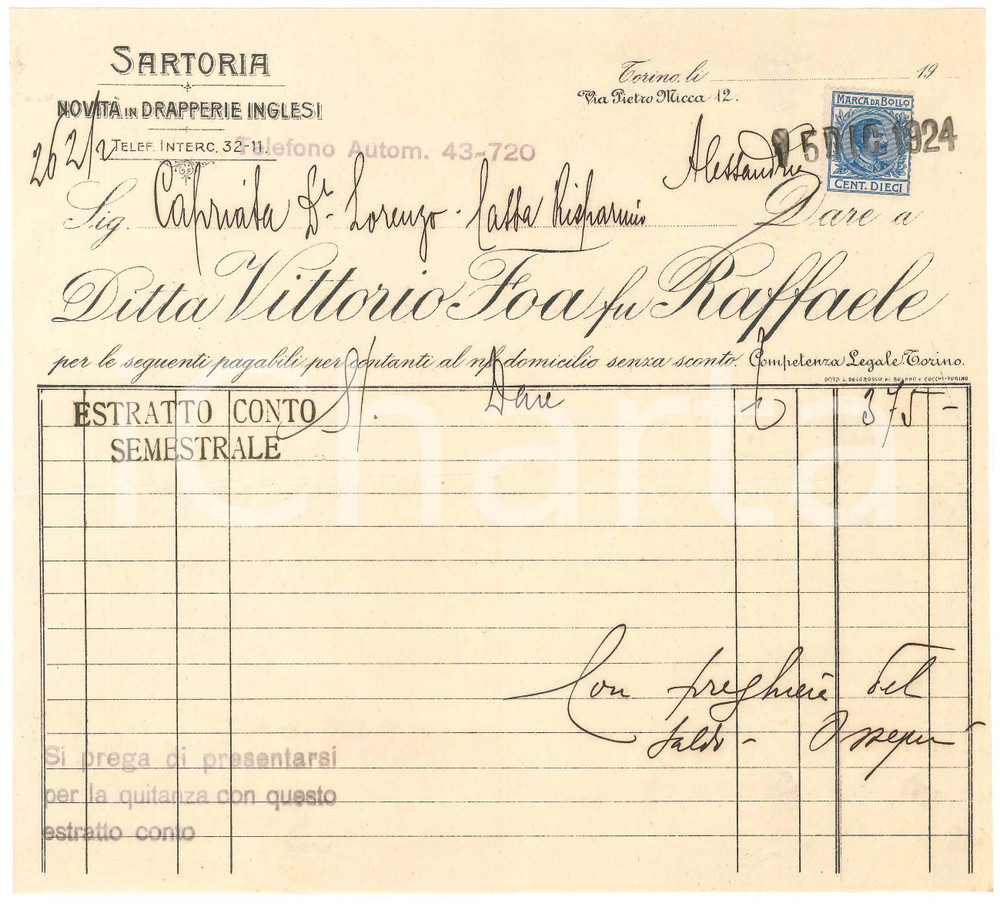 SARTORIA
NOVITÀ IN DRAPPERIE INGLESI
TELEF. INTERC. 32-11.
Telefono Autom. 43-720
Torino, li 19
Via Pietro Micca 12.
MARCA DA BOLLO
CENT. DIECI
5 DIC. 1924
262/2
Alessandria
Sig. Capriata Dr. Lorenzo - Cassa Risparmio Dare a
Ditta Vittorio Foa fu Raffaele
per le seguenti pagabili per contanti al ns domicilio senza sconto. Competenza Legale Torino.
DITTA L. DELGROSSO DI BOSANO E CUCCHI-TORINO
ESTRATTO CONTO
SEMESTRALE
Dare 375-
Con preghiera del
saldo - Ossequi
Si prega di presentarsi
per la quitanza con questo
estratto conto
iCharta